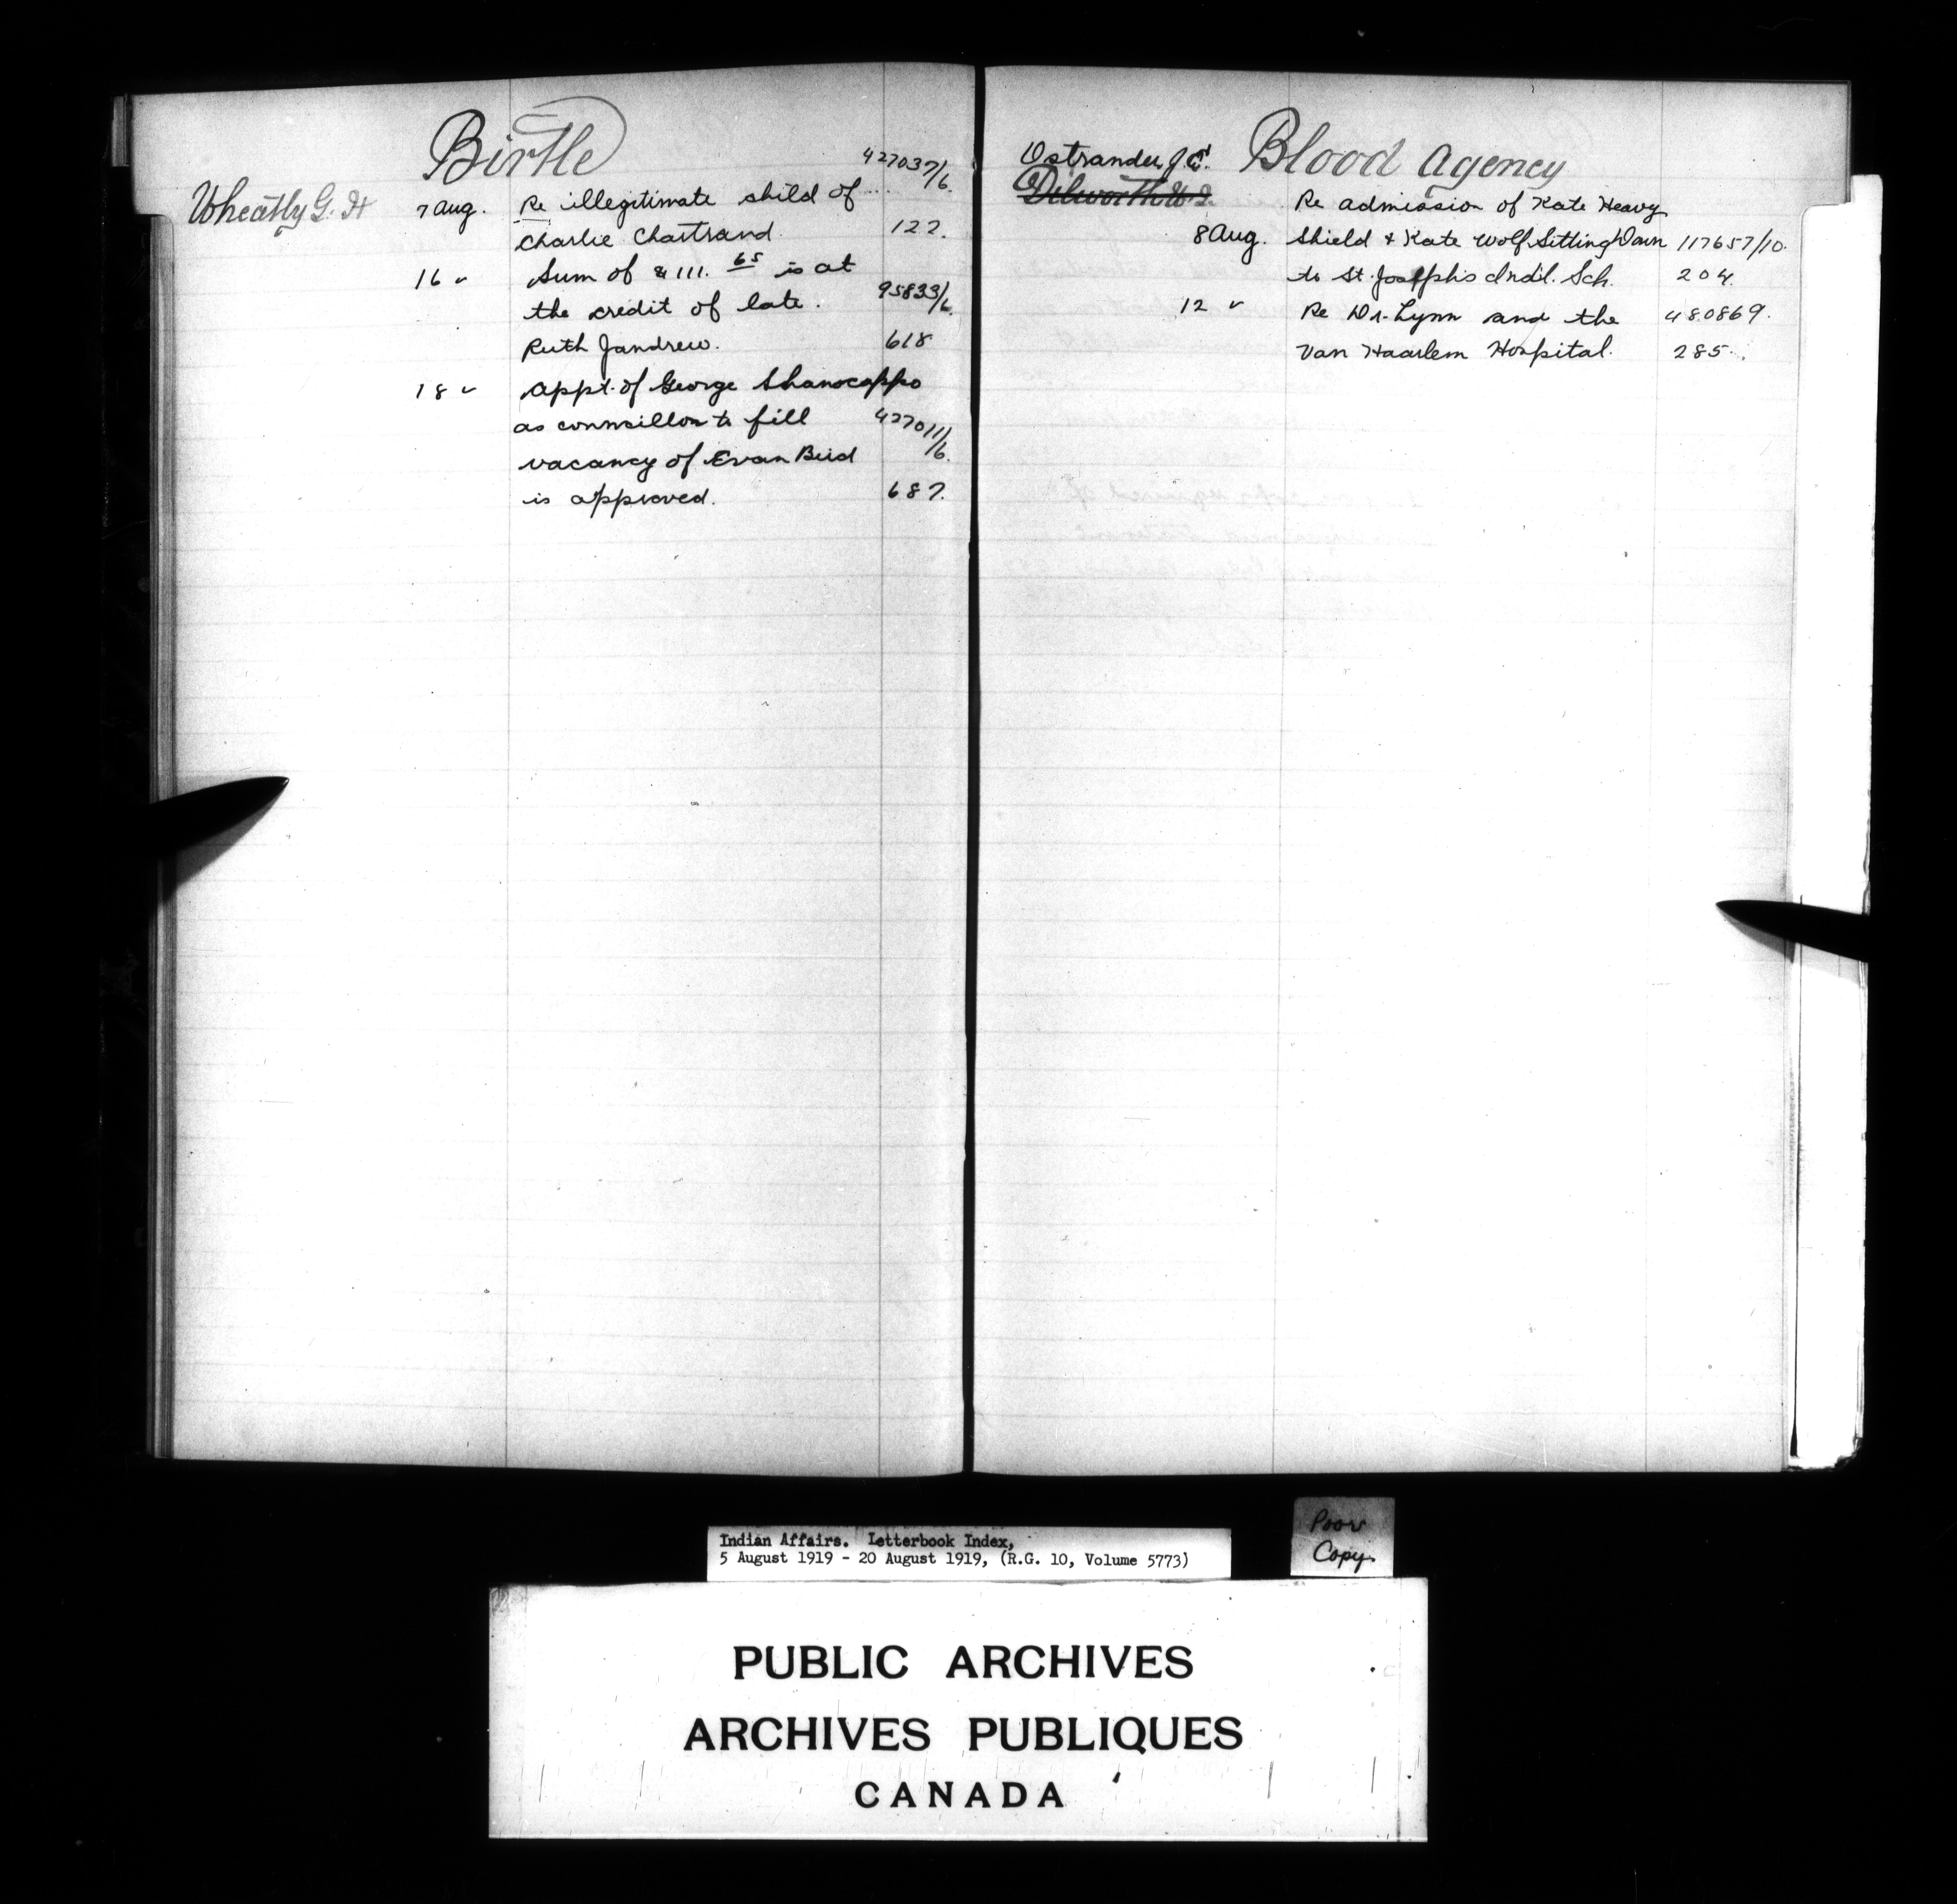 Birtle
427037/6.
Wheatly G. H
7 Aug. Re illegitimate child of ...
Charlie Chartrand. 122.
16 " Sum of $111. 65 is at
the credit of late. 95833/6.
Ruth Jandrew. 618
18 " Appt. of George Shanocappo
as councillor to fill 427011/6.
vacancy of Evan Bird
is approved. 687.
Ostrander, J. Blood Agency
Dilworth W. J.
Re admission of Kate Heavy
8 Aug. Shield & Kate Wolf Sitting Down 117657/10.
to St. Joseph's Indl. Sch. 204.
12 " Re Dr. Lynn and the 480869.
Van Haarlem Hospital. 285.
Indian Affairs. Letterbook Index,
5 August 1919 - 20 August 1919, (R.G. 10, Volume 5773)
Poor
Copy
PUBLIC ARCHIVES
ARCHIVES PUBLIQUES
CANADA